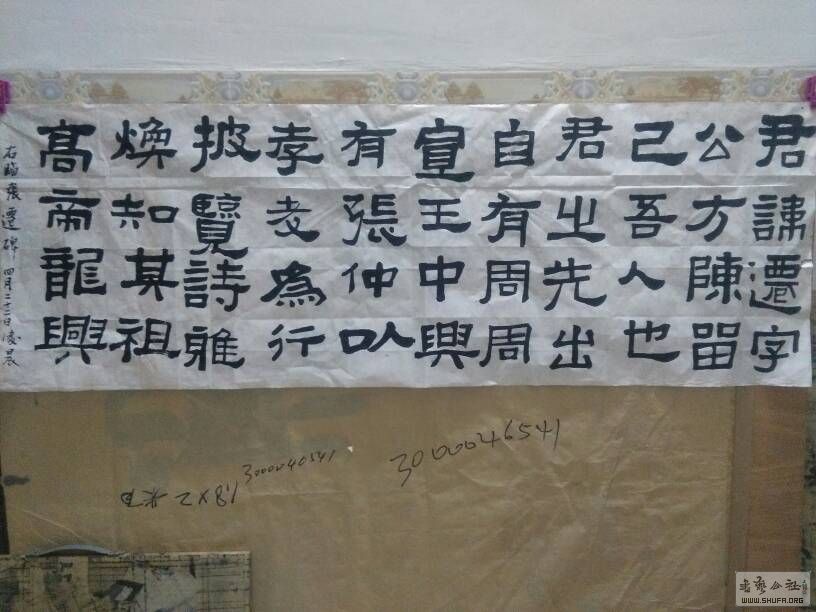 君諱遷字
公方陳留
己吾人也
君之先出
自有周周
宣王中興
有張仲以
孝友為行
披覽詩雅
煥知其祖
高帝龍興
右臨張遷碑 四月二十二日凌晨
3000046541
3000040541
WWW.SHUFA.ORG